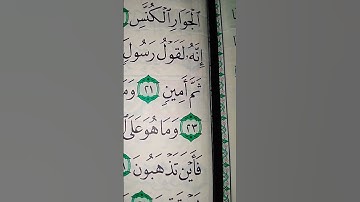 ٱلْجَوَارِ ٱلْكُنَّسِ
إِنَّهُۥ لَقَوْلُ رَسُولٍ
ثَمَّ أَمِينٍ ٢١ وَمَا
٢٣ وَمَا هُوَ عَلَى
فَأَيْنَ تَذْهَبُونَ